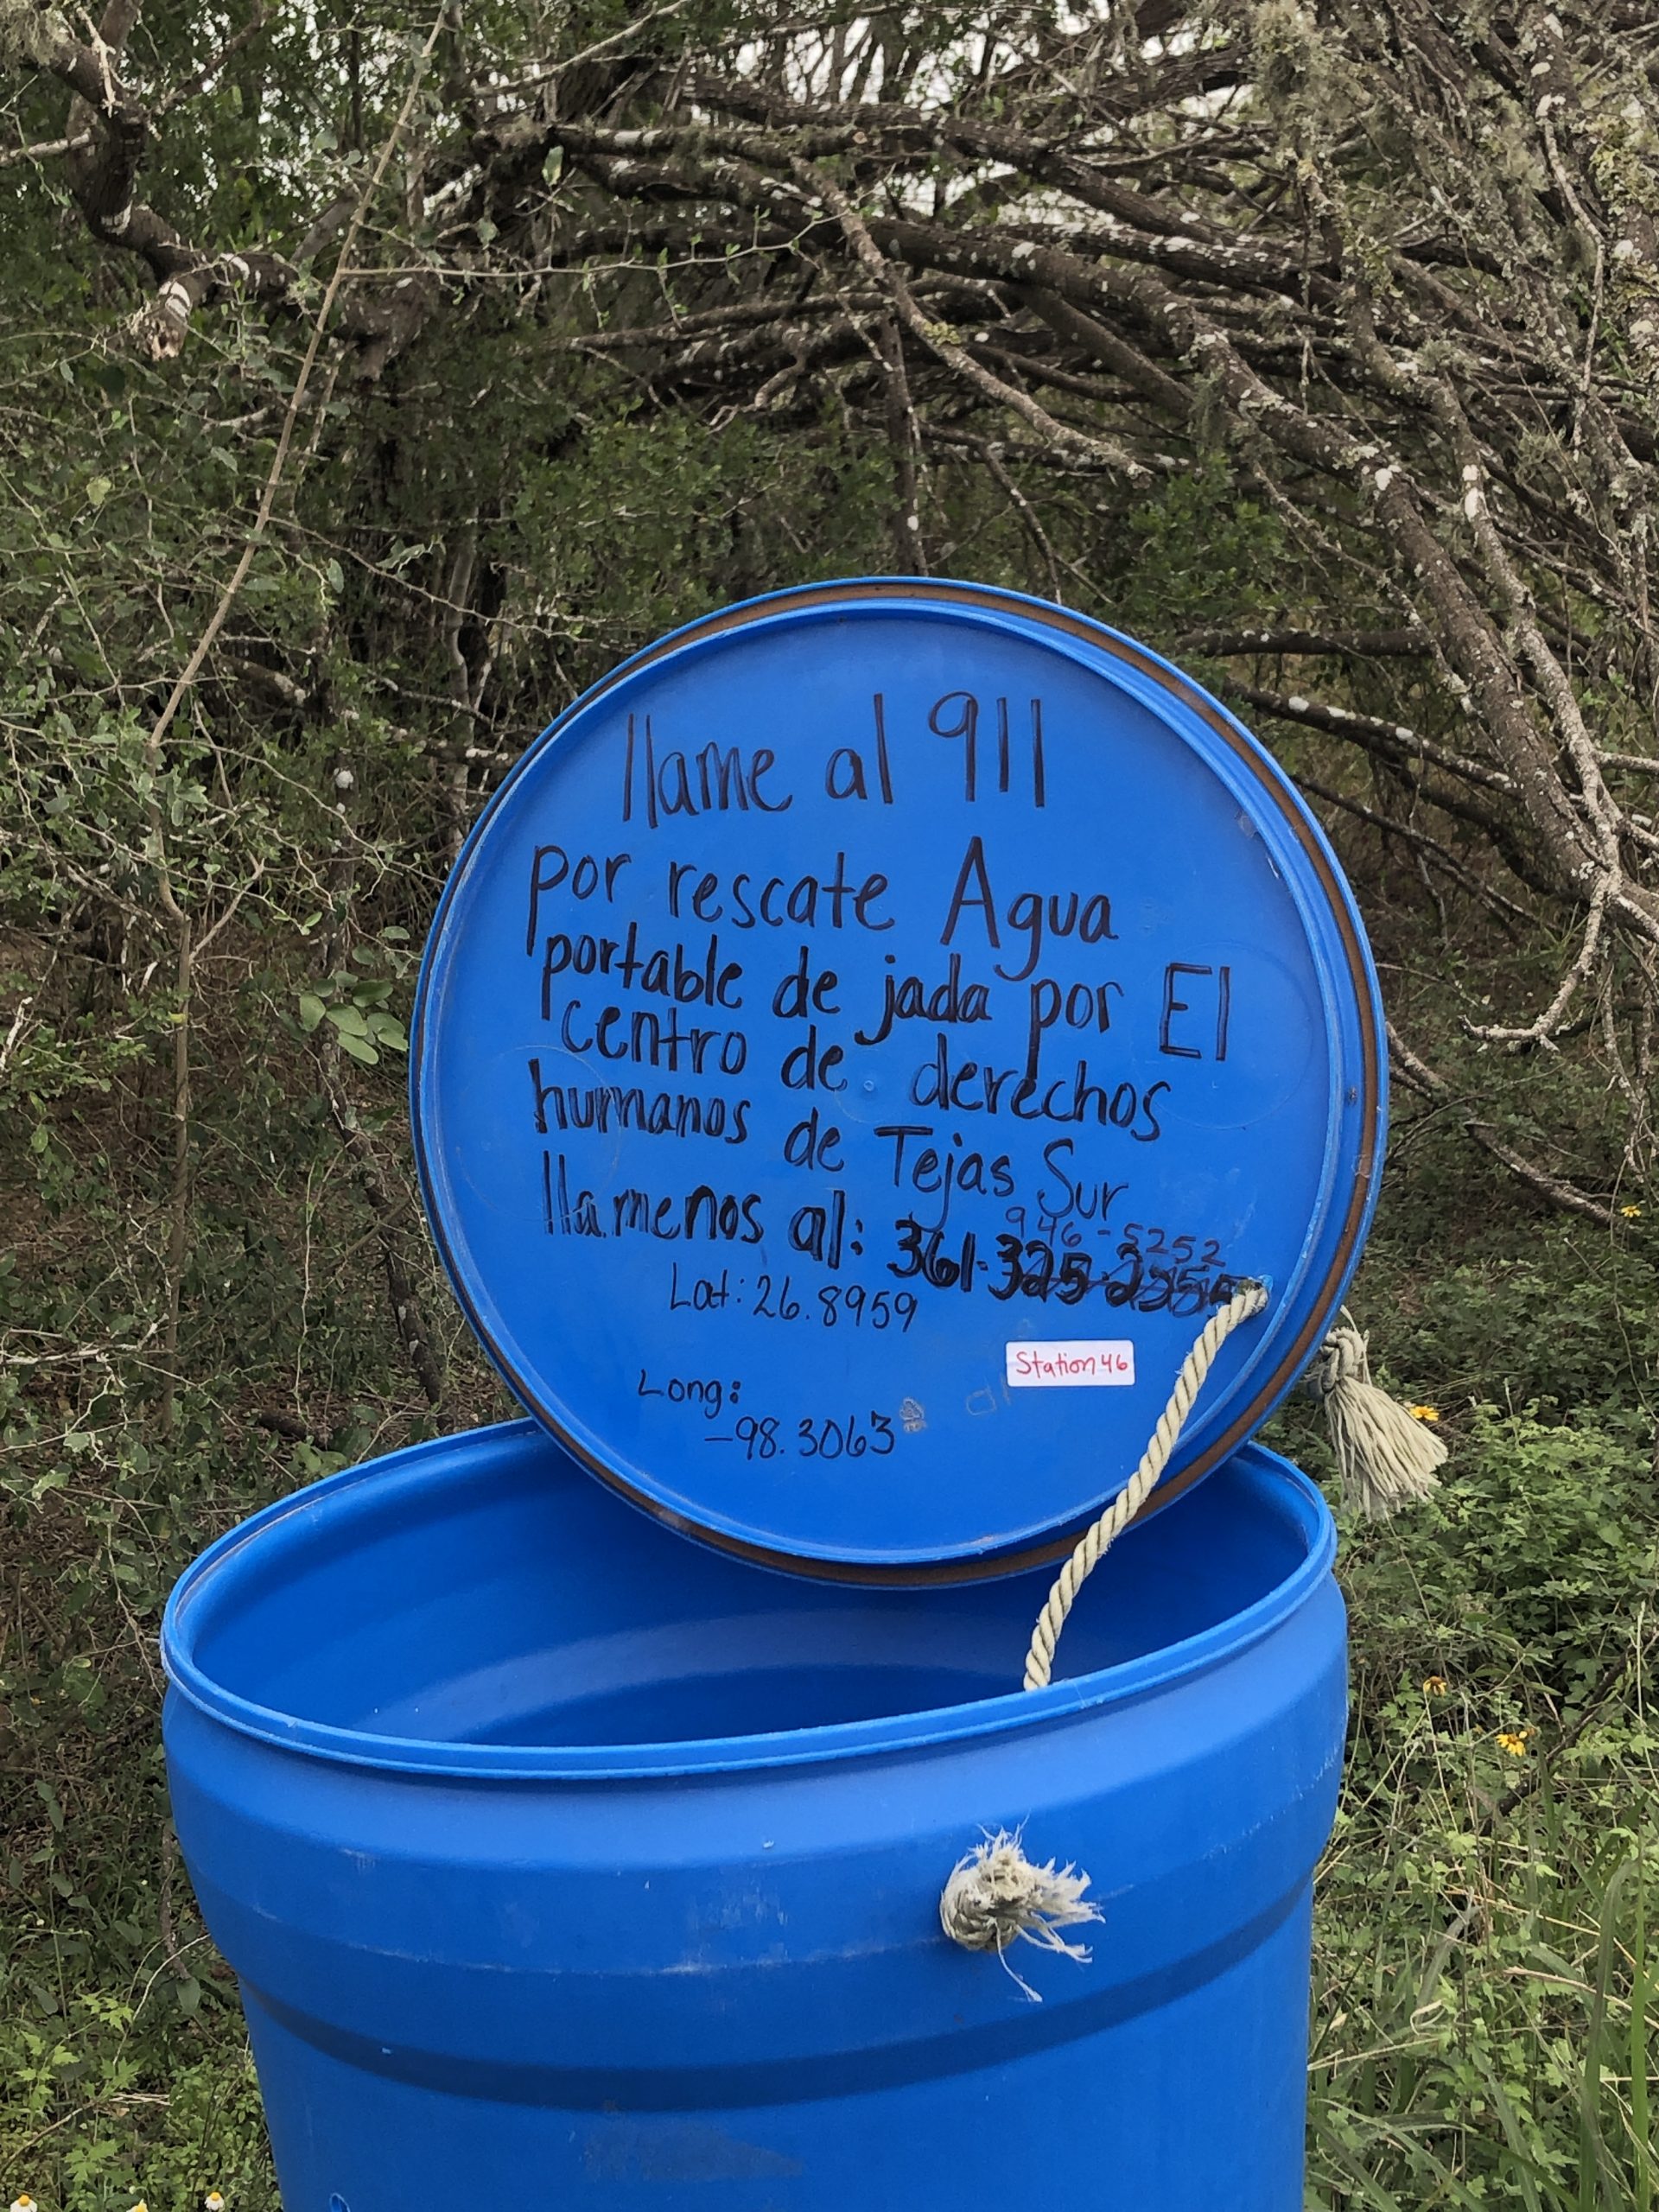 llame al 911
por rescate Agua
portable de jada por El
centro de derechos
humanos de Tejas Sur
llamenos al: 361-
946-5252
Lat: 26.8959
Station 46
Long:
-98.3063